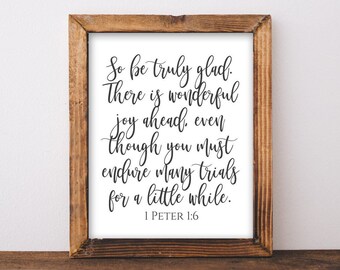 So be truly glad.
There is wonderful
joy ahead, even
though you must
endure many trials
for a little while.
1 PETER 1:6